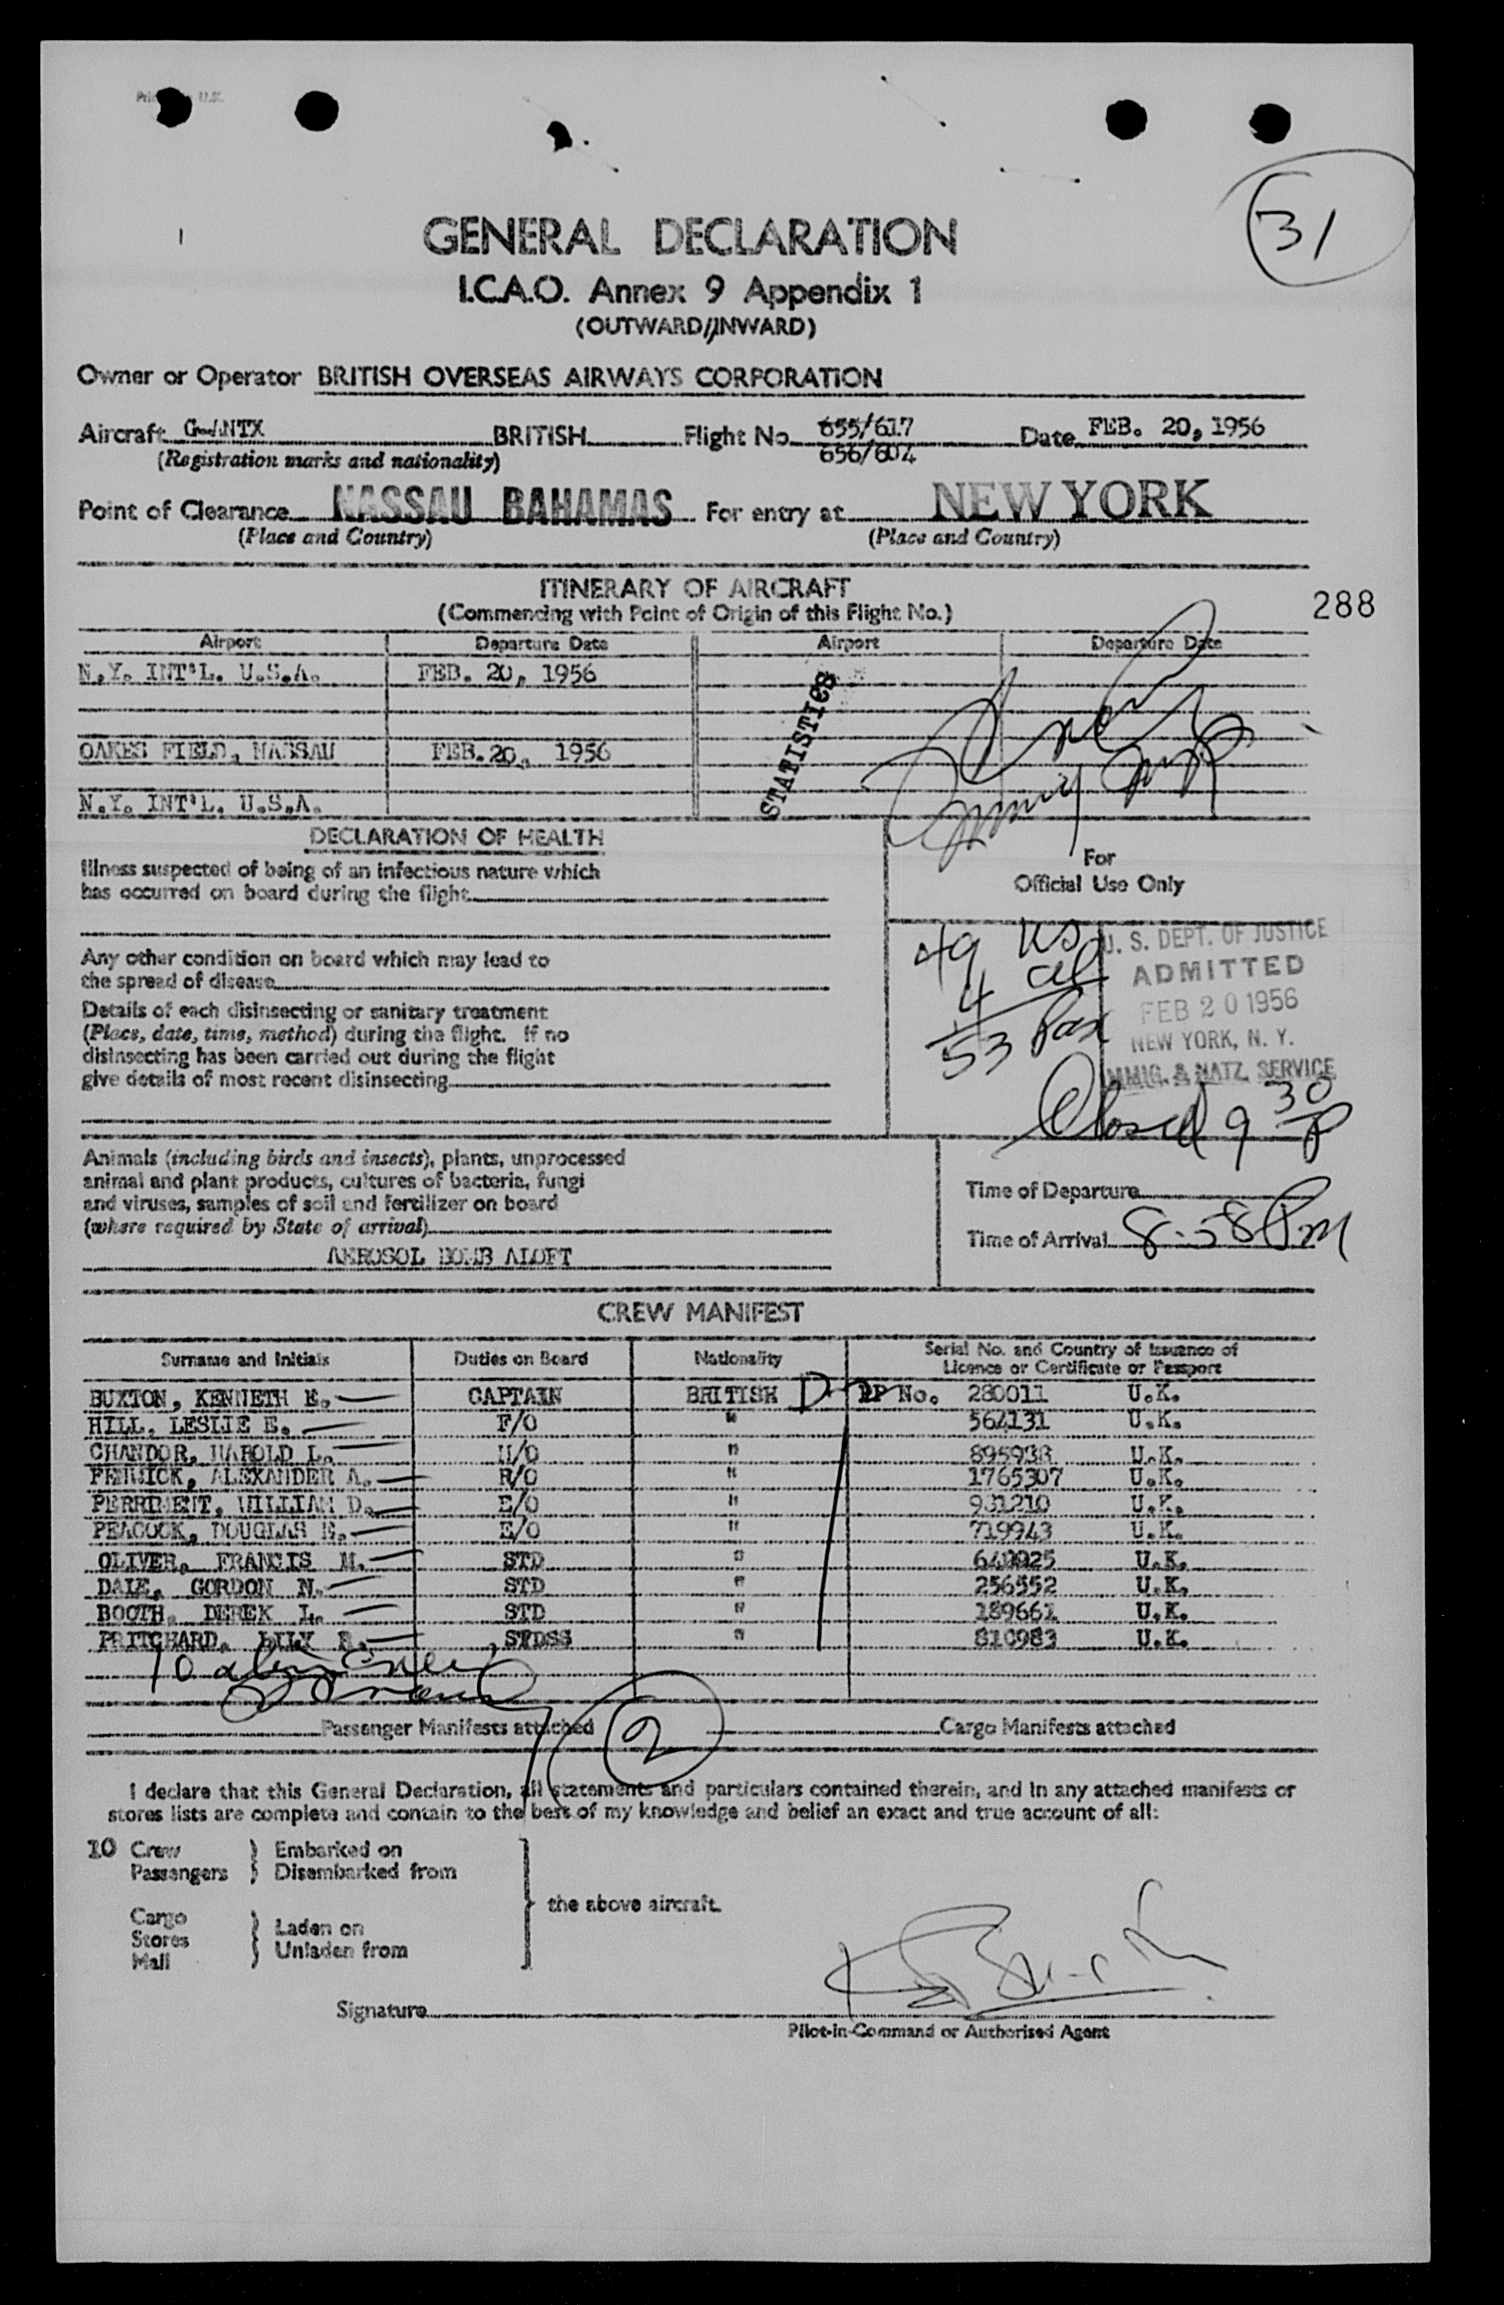 31
GENERAL DECLARATION
I.C.A.O. Annex 9 Appendix 1
(OUTWARD/INWARD)
Owner or Operator BRITISH OVERSEAS AIRWAYS CORPORATION
Aircraft G-ANTX BRITISH Flight No. 655/617 Date FEB. 20, 1956
656/604
(Registration marks and nationality)
Point of Clearance NASSAU BAHAMAS For entry at NEW YORK
(Place and Country) (Place and Country)
ITINERARY OF AIRCRAFT
(Commencing with Point of Origin of this Flight No.)
288
Airport Departure Date Airport Departure Date
N.Y. INT'L. U.S.A. FEB. 20, 1956
STATISTICS
OAKES FIELD, NASSAU FEB. 20, 1956
N.Y. INT'L. U.S.A.
DECLARATION OF HEALTH
Illness suspected of being of an infectious nature which
has occurred on board during the flight
For
Official Use Only
Any other condition on board which may lead to
the spread of disease
Details of each disinsecting or sanitary treatment
(Place, date, time, method) during the flight. If no
disinsecting has been carried out during the flight
give details of most recent disinsecting
49 US
4 al
53 Pax
U. S. DEPT. OF JUSTICE
ADMITTED
FEB 20 1956
NEW YORK, N. Y.
IMMIG. & NATZ. SERVICE
Closed 9 30 P
Animals (including birds and insects), plants, unprocessed
animal and plant products, cultures of bacteria, fungi
and viruses, samples of soil and fertilizer on board
(where required by State of arrival)
AEROSOL BOMB ALOFT
Time of Departure
Time of Arrival 8-58 Pm
CREW MANIFEST
Surname and Initials Duties on Board Nationality Serial No. and Country of Issuance of Licence or Certificate or Passport
BUXTON, KENNETH E. CAPTAIN BRITISH PP No. 280011 U.K.
HILL, LESLIE E. F/O " 564131 U.K.
CHANDOR, HAROLD L. N/O " 895938 U.K.
FENWICK, ALEXANDER A. R/O " 1765307 U.K.
PERRIMENT, WILLIAM D. E/O " 931210 U.K.
PEACOCK, DOUGLAS E. E/O " 719943 U.K.
OLIVER, FRANCIS M. STD " 640925 U.K.
DALE, GORDON N. STD " 256552 U.K.
BOOTH, DEREK L. STD " 189661 U.K.
PRITCHARD, LILY STDSS " 810983 U.K.
10 alien crew
Passenger Manifests attached 2 Cargo Manifests attached
I declare that this General Declaration, all statements and particulars contained therein, and in any attached manifests or
stores lists are complete and contain to the best of my knowledge and belief an exact and true account of all:
10 Crew } Embarked on
Passengers } Disembarked from
the above aircraft.
Cargo
Stores } Laden on
Mail } Unladen from
Signature
Pilot-in-Command or Authorised Agent